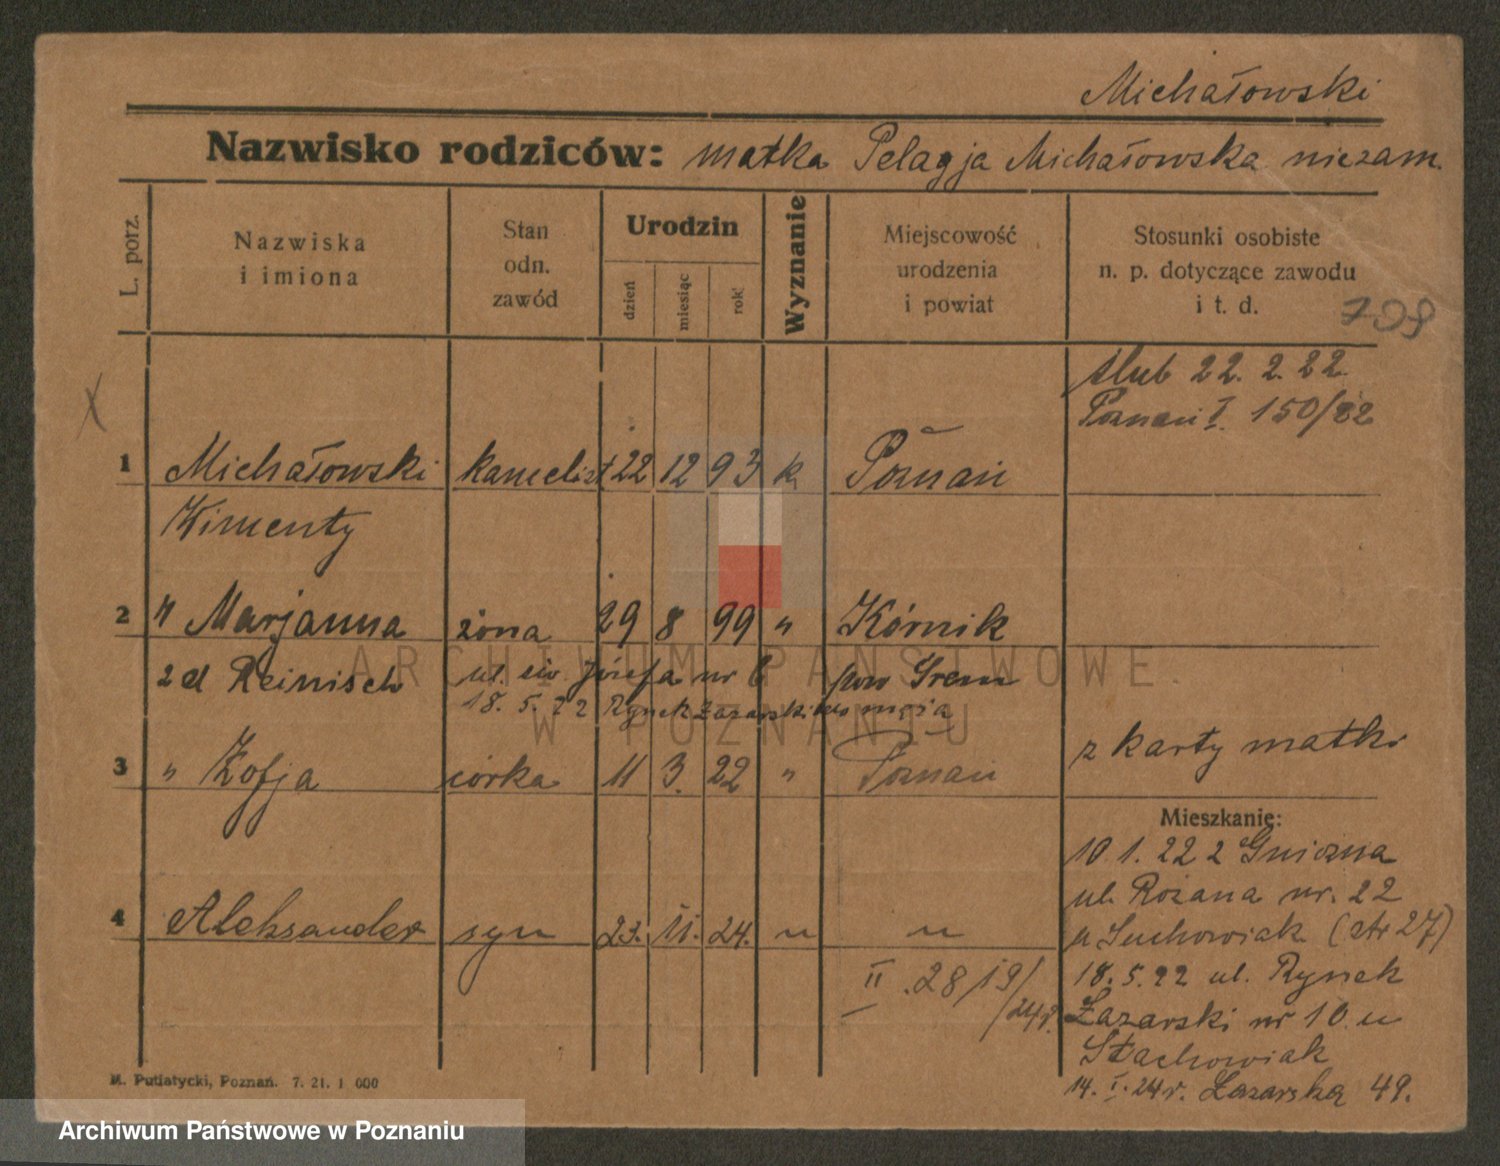 Michałowski
Nazwisko rodziców: matka Pelagja Michałowska niezam.
L. porz.
Nazwiska i imiona
Stan odn. zawód
Urodzin
dzień miesiąc rok
Wyznanie
Miejscowość urodzenia i powiat
Stosunki osobiste n. p. dotyczące zawodu i t. d.
709
ślub 22. 2. 22
Poznań I. 150/22
X
1 Michałowski kancelist 22 12 93 k Poznań
Klimenty
2 " Marjanna żona 29 8 99 " Kórnik
z d Reinisch ul. św. Józefa nr 6 pow Śrem
18. 5. 22 Rynek Łazarski do męża
3 " Zofja córka 11 3. 22 " Poznań
z karty matki
Mieszkanie:
10. 1. 22 z Gniezna
ul. Różana nr. 22
u Suchowiak (str 27)
4 Aleksander syn 23. 11. 24. " "
II. 2819/24r.
18. 5. 22 ul. Rynek
Łazarski nr 10. u
Stachowiak
14. I. 24r. Łazarska 49.
M. Putiatycki, Poznań. 7. 21. 1 000
ARCHIWUM PAŃSTWOWE
W POZNANIU
Archiwum Państwowe w Poznaniu